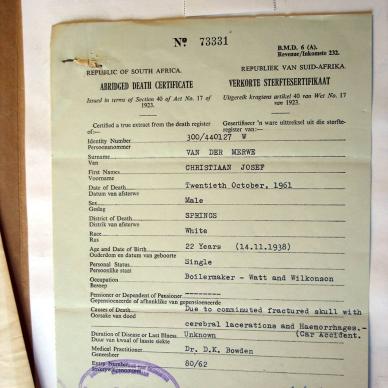 Nº 73331
B.M.D. 6 (A).
Revenue/Inkomste 232.
REPUBLIC OF SOUTH AFRICA. REPUBLIEK VAN SUID-AFRIKA.
ABRIDGED DEATH CERTIFICATE VERKORTE STERFTESERTIFIKAAT
Issued in terms of Section 40 of Act No. 17 of 1923. Uitgereik kragtens artikel 40 van Wet No. 17 van 1923.
Certified a true extract from the death register of:— Gesertifiseer 'n ware uittreksel uit die sterfteregister van:—
Identity Number 300/440127 W
Persoonsnommer
Surname VAN DER MERWE
Van
First Names CHRISTIAAN JOSEF
Voorname
Date of Death Twentieth October, 1961
Datum van afsterwe
Sex Male
Geslag
District of Death SPRINGS
Distrik van afsterwe
Race White
Ras
Age and Date of Birth 22 Years (14.11.1938)
Ouderdom en datum van geboorte
Personal Status Single
Persoonlike staat
Occupation Boilermaker - Watt and Wilkonson
Beroep
Pensioner or Dependent of Pensioner --------
Gepensioeneerde of afhanklike van gepensioeneerde
Causes of Death Due to comminuted fractured skull with
Oorsake van dood cerebral lacerations and Haemorrhages.-
Duration of Disease or Last Illness Unknown (Car Accident.
Duur van kwaal of laaste siekte
Medical Practitioner Dr. D.K. Bowden
Geneesheer
Entry Number 80/62